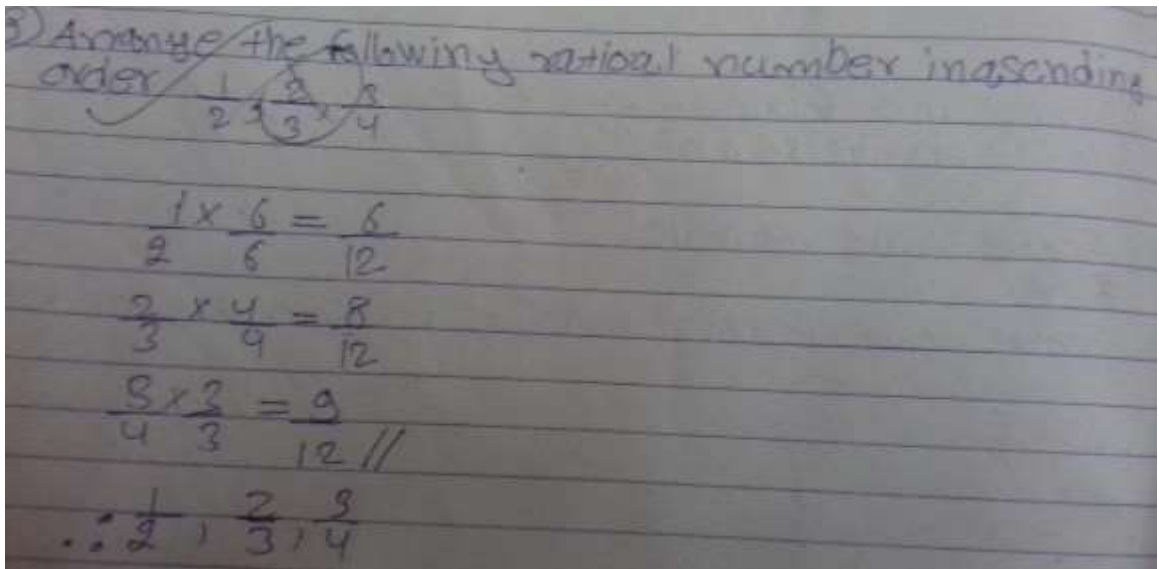 3) Arrange the following rational number in asending
order 1/2, 2/3, 3/4
1/2 × 6/6 = 6/12
2/3 × 4/4 = 8/12
3/4 × 3/3 = 9/12 //
∴ 1/2, 2/3, 3/4